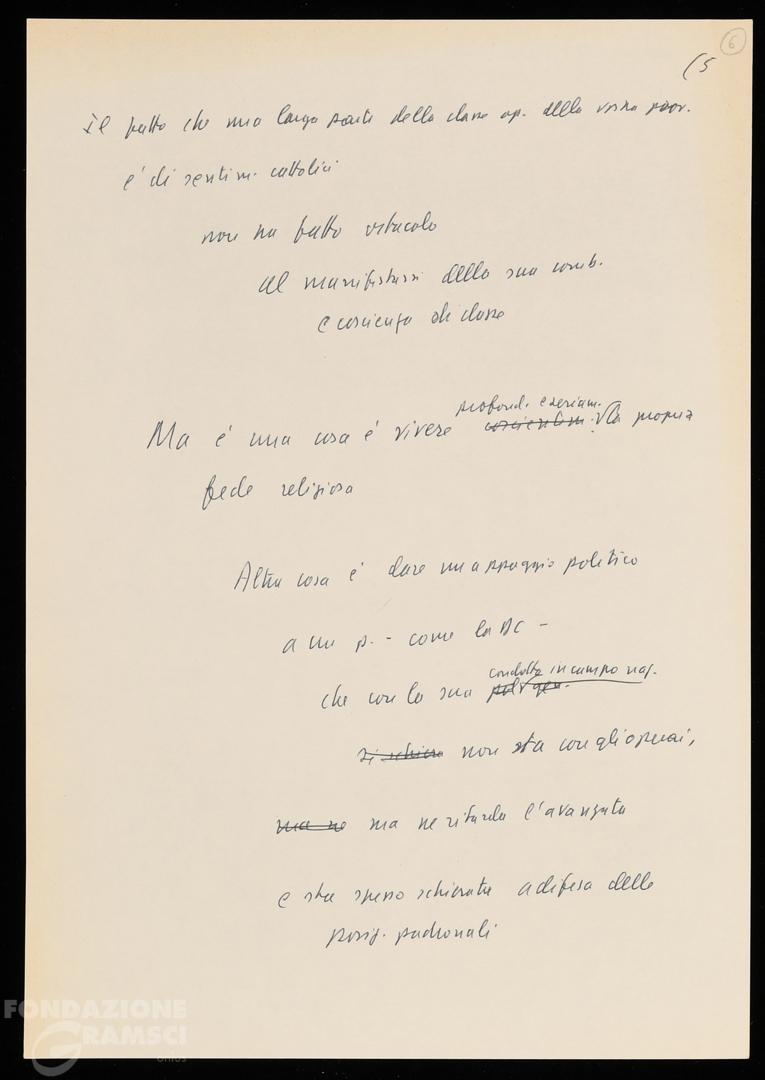 6
(5
Il fatto che una larga parte della classe op. della vostra prov.
e' di sentim. cattolici
non ha fatto ostacolo
al manifestarsi della sua comb.
e coscienza di classe
profond. e seriam.
Ma è una cosa è vivere coscientem. la propria
fede religiosa
Altra cosa è dare un appoggio politico
a un p. - come la DC -
condotta in campo naz.
che con la sua pol. gen.
si schiera non sta con gli operai,
ma ne ma ne ritarda l'avanzata
e sta spesso schierata a difesa delle
posiz. padronali
FONDAZIONE
GRAMSCI
onlus